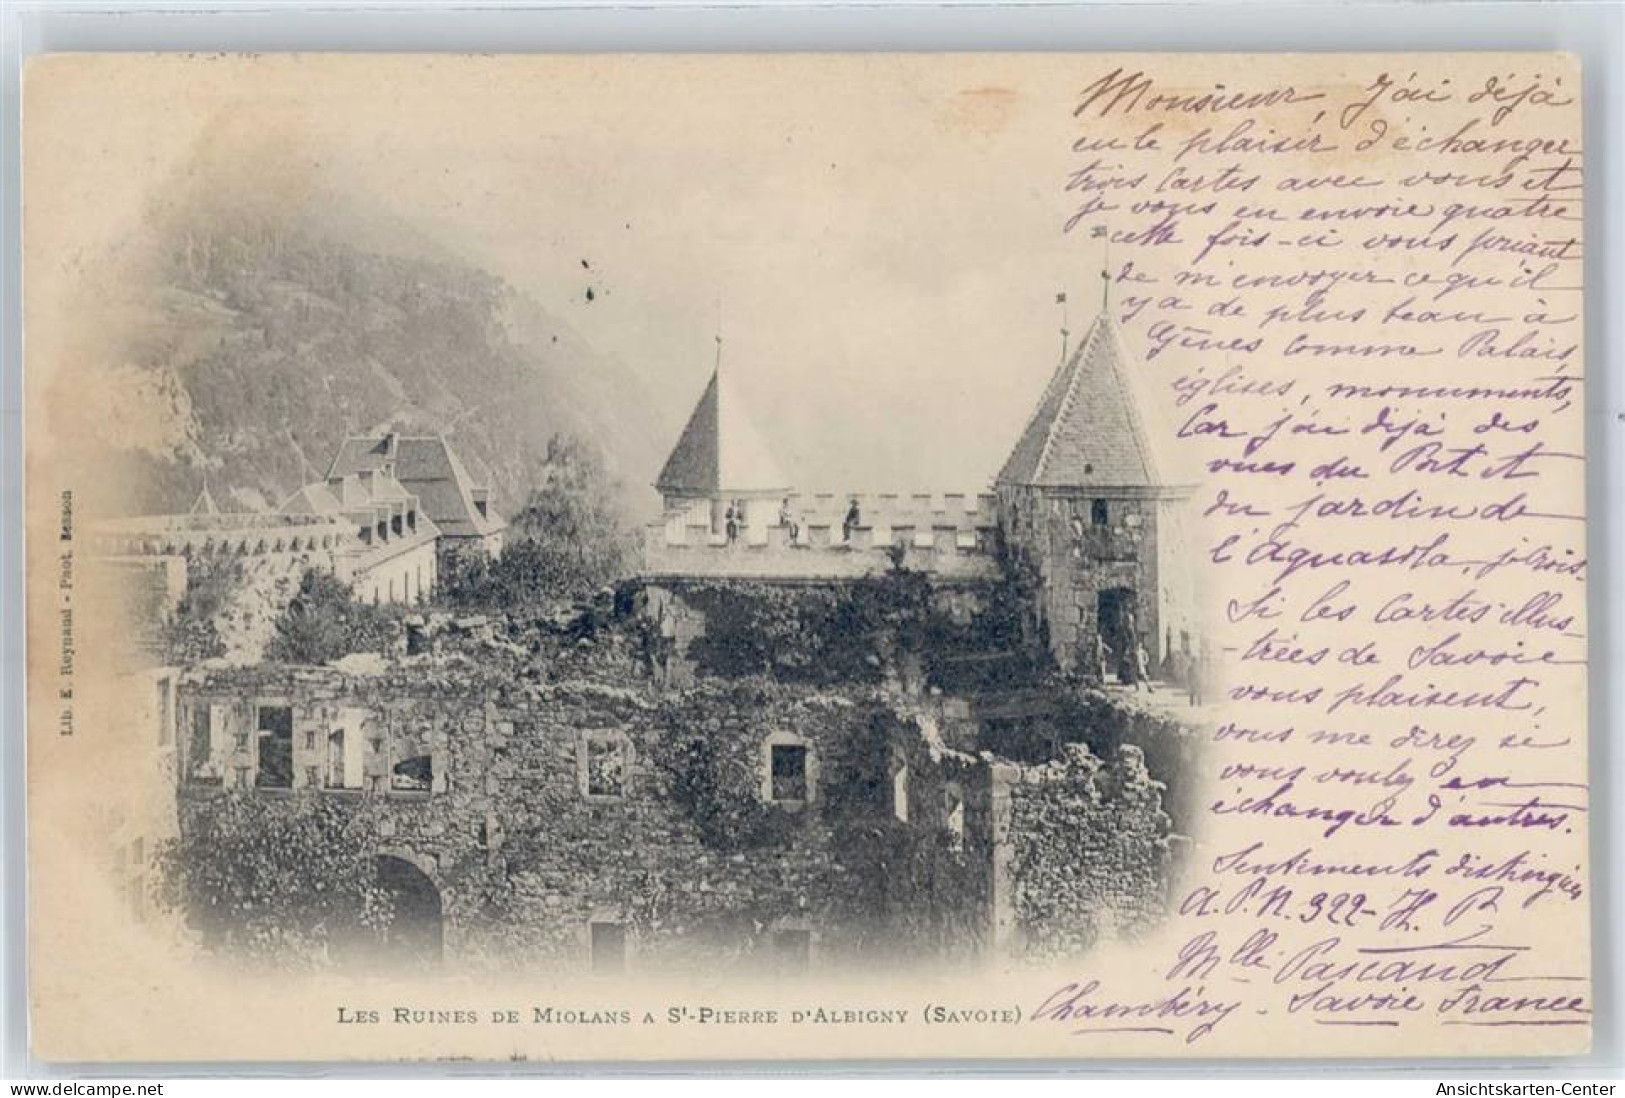 Monsieur, J'ai déjà
eu le plaisir d'échanger
trois cartes avec vous et
je vous en envoie quatre
cette fois-ci vous priant
de m'envoyer ce qu'il
y a de plus beau à
Gênes comme Palais,
églises, monuments,
Car j'ai déjà des
vues du Port et
du jardin de
l'Aquasola, je crois.
Si les Cartes illus-
-trées de Savoie
vous plaisent,
vous me direz si
vous voulez en
échanger d'autres.
Sentiments distingués
A.P.N. 322- H. P.
Mlle Pascaud
Chambéry - Savoie France
LES RUINES DE MIOLANS A St-PIERRE D'ALBIGNY (SAVOIE)
Lib. E. Reynaud - Phot. Besson
delcampe.net
Ansichtskarten-Center